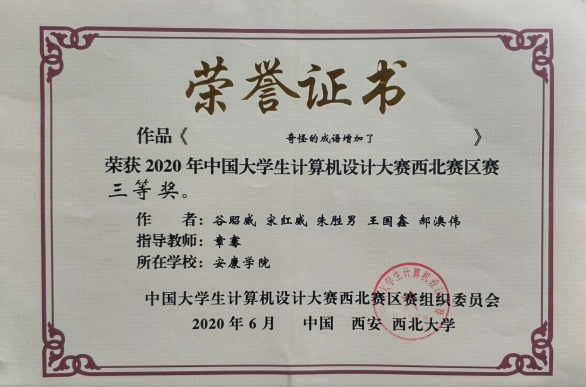 荣誉证书
作品《 奇怪的成语增加了 》
荣获 2020 年中国大学生计算机设计大赛西北赛区赛
三等奖。
作 者：谷昭威 宋红威 朱胜男 王国鑫 郝澳伟
指导教师：章骞
所在学校：安康学院
中国大学生计算机设计大赛西北赛区赛组织委员会
2020 年 6 月 中国 西安 西北大学